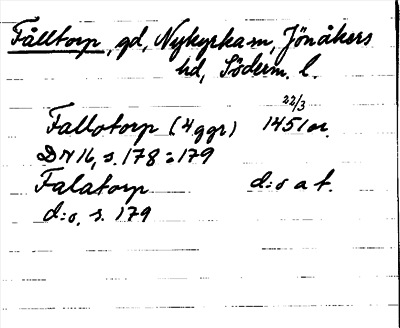 Fålltorp, gd, Nykyrka sn, Jönåkers
hd, Söderm. l.
22/3
Fallotorp (4 ggr) 1451 or.
DN 16, s. 178-179
Falatorp d:o a t.
d:o, s. 179